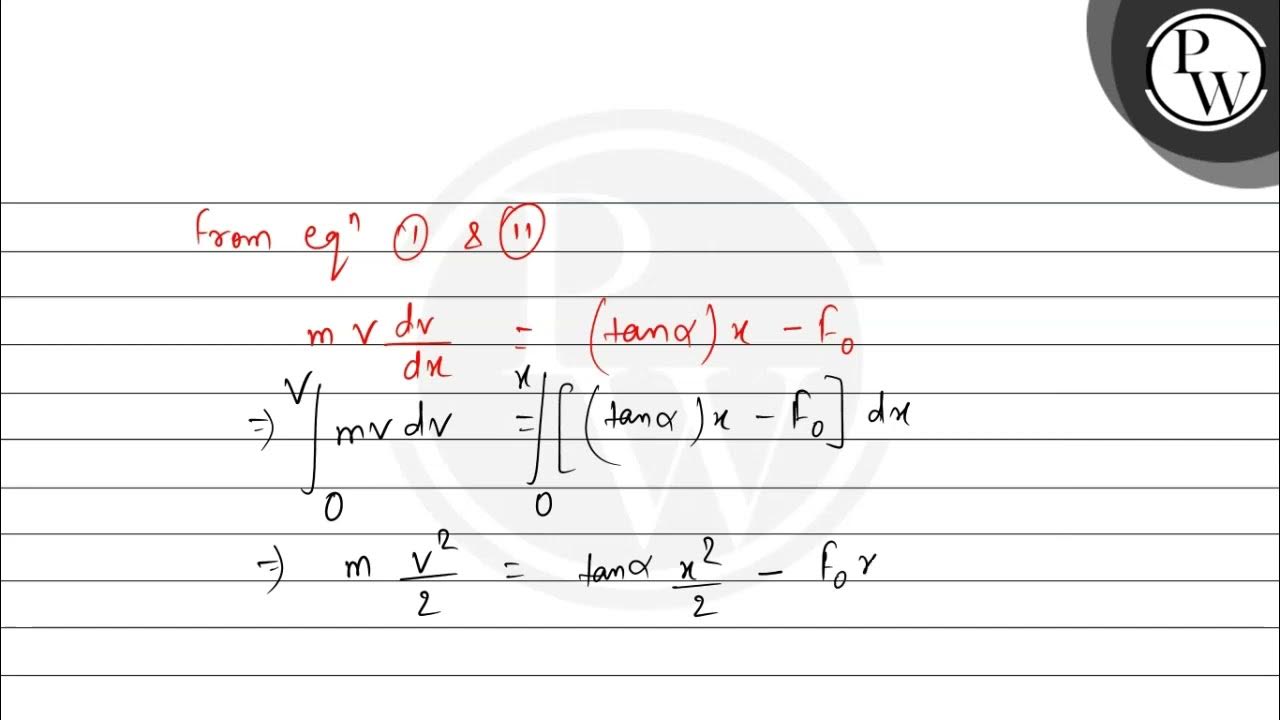 PW
from eqⁿ ① & ⑪
m v dv/dx = (tanα) x - F₀
⇒ ∫₀^V mv dv = ∫₀^x [(tanα) x - F₀] dx
⇒ m v²/2 = tanα x²/2 - F₀ x